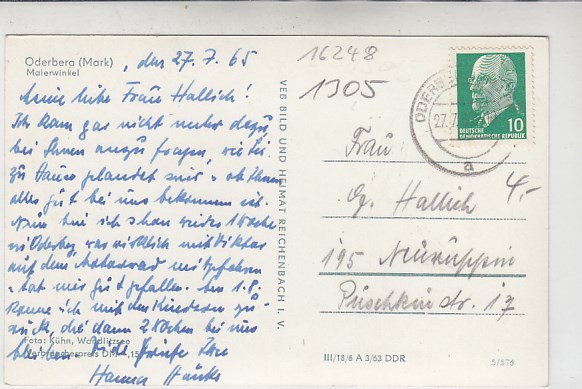 Oderberg (Mark)
Malerwinkel
, den 27. 7. 65
Meine liebe Frau Hallich!
Ich kam gar nicht mehr dazu,
bei Ihnen anzufragen, wie Sie
zu Hause gelandet sind u. ob Ihnen
alles gut bei uns bekommen ist.
Nun bin ich schon wieder 1 Woche
in Oderberg, was wirklich mit Viktor
auf dem Motorrad mitgefahren
hat mir gut gefallen. Am 1.8.
komme ich mit den Kindern zu-
rück, die dann 2 Wochen bei uns
bleiben. Viele Grüße Ihre
Hanna
Foto: Kühn, Wandlitzsee
Verbraucherpreis DM -,15
VEB BILD UND HEIMAT REICHENBACH I. V.
16248
1305
ODERB
27.7
a
DEUTSCHE
DEMOKRATISCHE REPUBLIK
10
4,-
Frau
Hallich
195 Neuruppin
Puschkinstr. 17
III/18/6 A 3/63 DDR
5/576